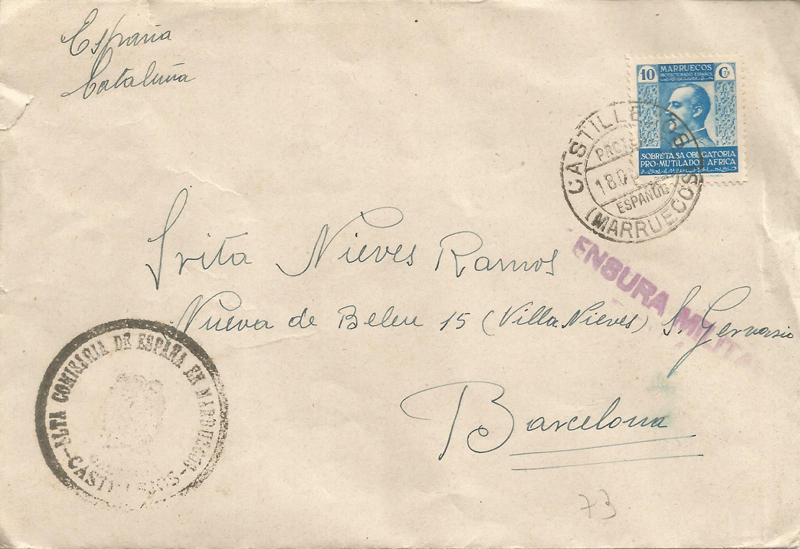 España
Cataluña
10 MARRUECOS Cs
PROTECTORADO ESPAÑOL
SOBRETASA OBLIGATORIA
PRO-MUTILADOS AFRICA
CASTILLEJOS
(MARRUECOS)
ESPAÑOL
ENSURA MILITA
Srita Nieves Ramos
Nueva de Belen 15 (Villa Nieves) S. Gervasio
Barcelona
73
ALTA COMISARIA DE ESPAÑA EN MARRUECOS
-CASTILLEJOS-